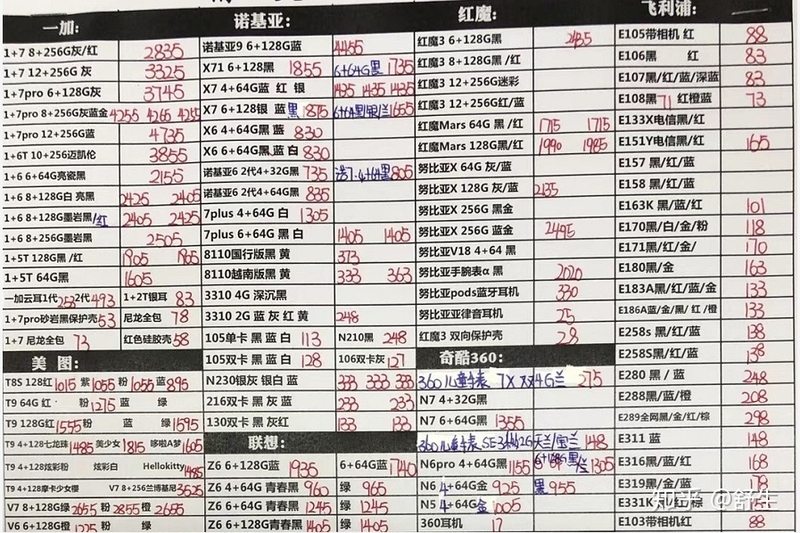 一加：
1+7 8+256G灰/红 2835
1+7 12+256G 灰 3325
1+7pro 6+128G灰 3745
1+7pro 8+256G灰蓝金 4255 4265 4255
1+7pro 12+256G蓝 4735
1+6T 10+256迈凯伦 3855
1+6 6+64G亮瓷黑 2155
1+6 8+128G白 亮黑 2425 2405
1+6 8+128G墨岩黑/红 2405 2425
1+6 8+256G墨岩黑 2505
1+5T 128G黑/红 1905 1905
1+5T 64G黑 1605
一加云耳1代 2代493 1+2T银耳 83
1+7pro砂岩黑保护壳53 尼龙全包 78
1+7 尼龙全包 73 红色硅胶壳 58
美 图：
T8S 128红1015 紫1055 粉1055 蓝895
T9 64G 红 粉1275 蓝
T9 128G红1555 粉 蓝 1595
T9 4+128七龙珠1485 美少女1815 哆啦A梦1605
T9 4+128炫彩粉 炫彩白 Hellokitty1485
T9 4+128摩卡少女樱 V7 8+256兰博基尼3625
V7 8+128G绿2655 粉2855 橙2655
V6 6+128G橙1225 粉 绿
诺基亚：
诺基亚9 6+128G蓝 4455
X71 6+128黑 1855 6+64G黑 1735
X7 4+64G蓝 红 银 1435 1435 1435
X7 6+128银 蓝 黑1875 6+64黑/银/兰1655
X6 4+64G黑 蓝 830
X6 6+64G黑 蓝 白830
诺基亚6 2代4+32G黑 735 805
诺基亚6 2代4+64G黑 835
7plus 4+64G 白 1305
7plus 6+64G 黑 白 1405 1405
8110国行版黑 黄 373
8110越南版黑 黄 333 363
3310 4G 深沉黑
3310 2G 蓝 灰 红 黄 248
105单卡 黑 蓝 白 113 N210黑 248
105双卡 黑 蓝 白 128 106双卡灰127
N230银灰 银白 蓝 333 333 333
216双卡 黑 灰 蓝 233 233
130双卡 黑 灰红 133 133
联想：
Z6 6+128G蓝 1935 6+64G蓝 1740
Z6 4+64G 青春黑 960 绿 965
Z6 6+64G 青春黑 1245 绿 1245
Z6 6+128G青春黑1405 绿 1405
红魔：
红魔3 6+128G黑 2435
红魔3 8+128G黑 /红
红魔3 12+256G迷彩
红魔3 12+256G红/蓝
红魔Mars 64G 黑 /红 1715 1715
红魔Mars 128G黑/红 1990 1985
努比亚X 64G 灰/蓝
努比亚X 128G 灰/蓝 2135
努比亚X 256G 黑金
努比亚X 256G 蓝金 2495
努比亚V18 4+64 黑
努比亚手腕表α 黑 2020
努比亚pods蓝牙耳机 330
努比亚亚律音耳机 25
红魔3 双向保护壳 28
奇酷360：
360儿童手表 7X 双4G兰 275
N7 4+32G黑
N7 6+64G黑 1355
360儿童手表SE3 2G天兰/宝兰 148
N6pro 4+64G黑1155 6+128G黑/兰1305
N6 4+64G金 925 黑 955
N5 4+64G金1005
360耳机 17
飞利浦：
E105带相机 红 88
E106黑 红 83
E107黑/红/蓝/深蓝 83
E108黑71 红橙蓝 73
E133X电信黑/红
E151Y电信黑/红 165
E157 黑/红/蓝
E158 黑/红/蓝
E163K 黑/蓝/红 101
E170黑/白/金/粉 118
E171黑/红/金/ 170
E180黑/金 163
E183A黑/红/蓝/金 133
E186A蓝/金/黑/ 红 /橙 133
E258s 黑/红/蓝 138
E258S黑/红/蓝 138
E280 黑 / 蓝 248
E288黑/红/蓝/橙 208
E289全网黑/金/红/棕 298
E311 蓝 148
E316/黑/蓝/红 168
E319/黑/金/蓝 178
E331K 红/棕
E103带相机红 88
知乎 @舒生